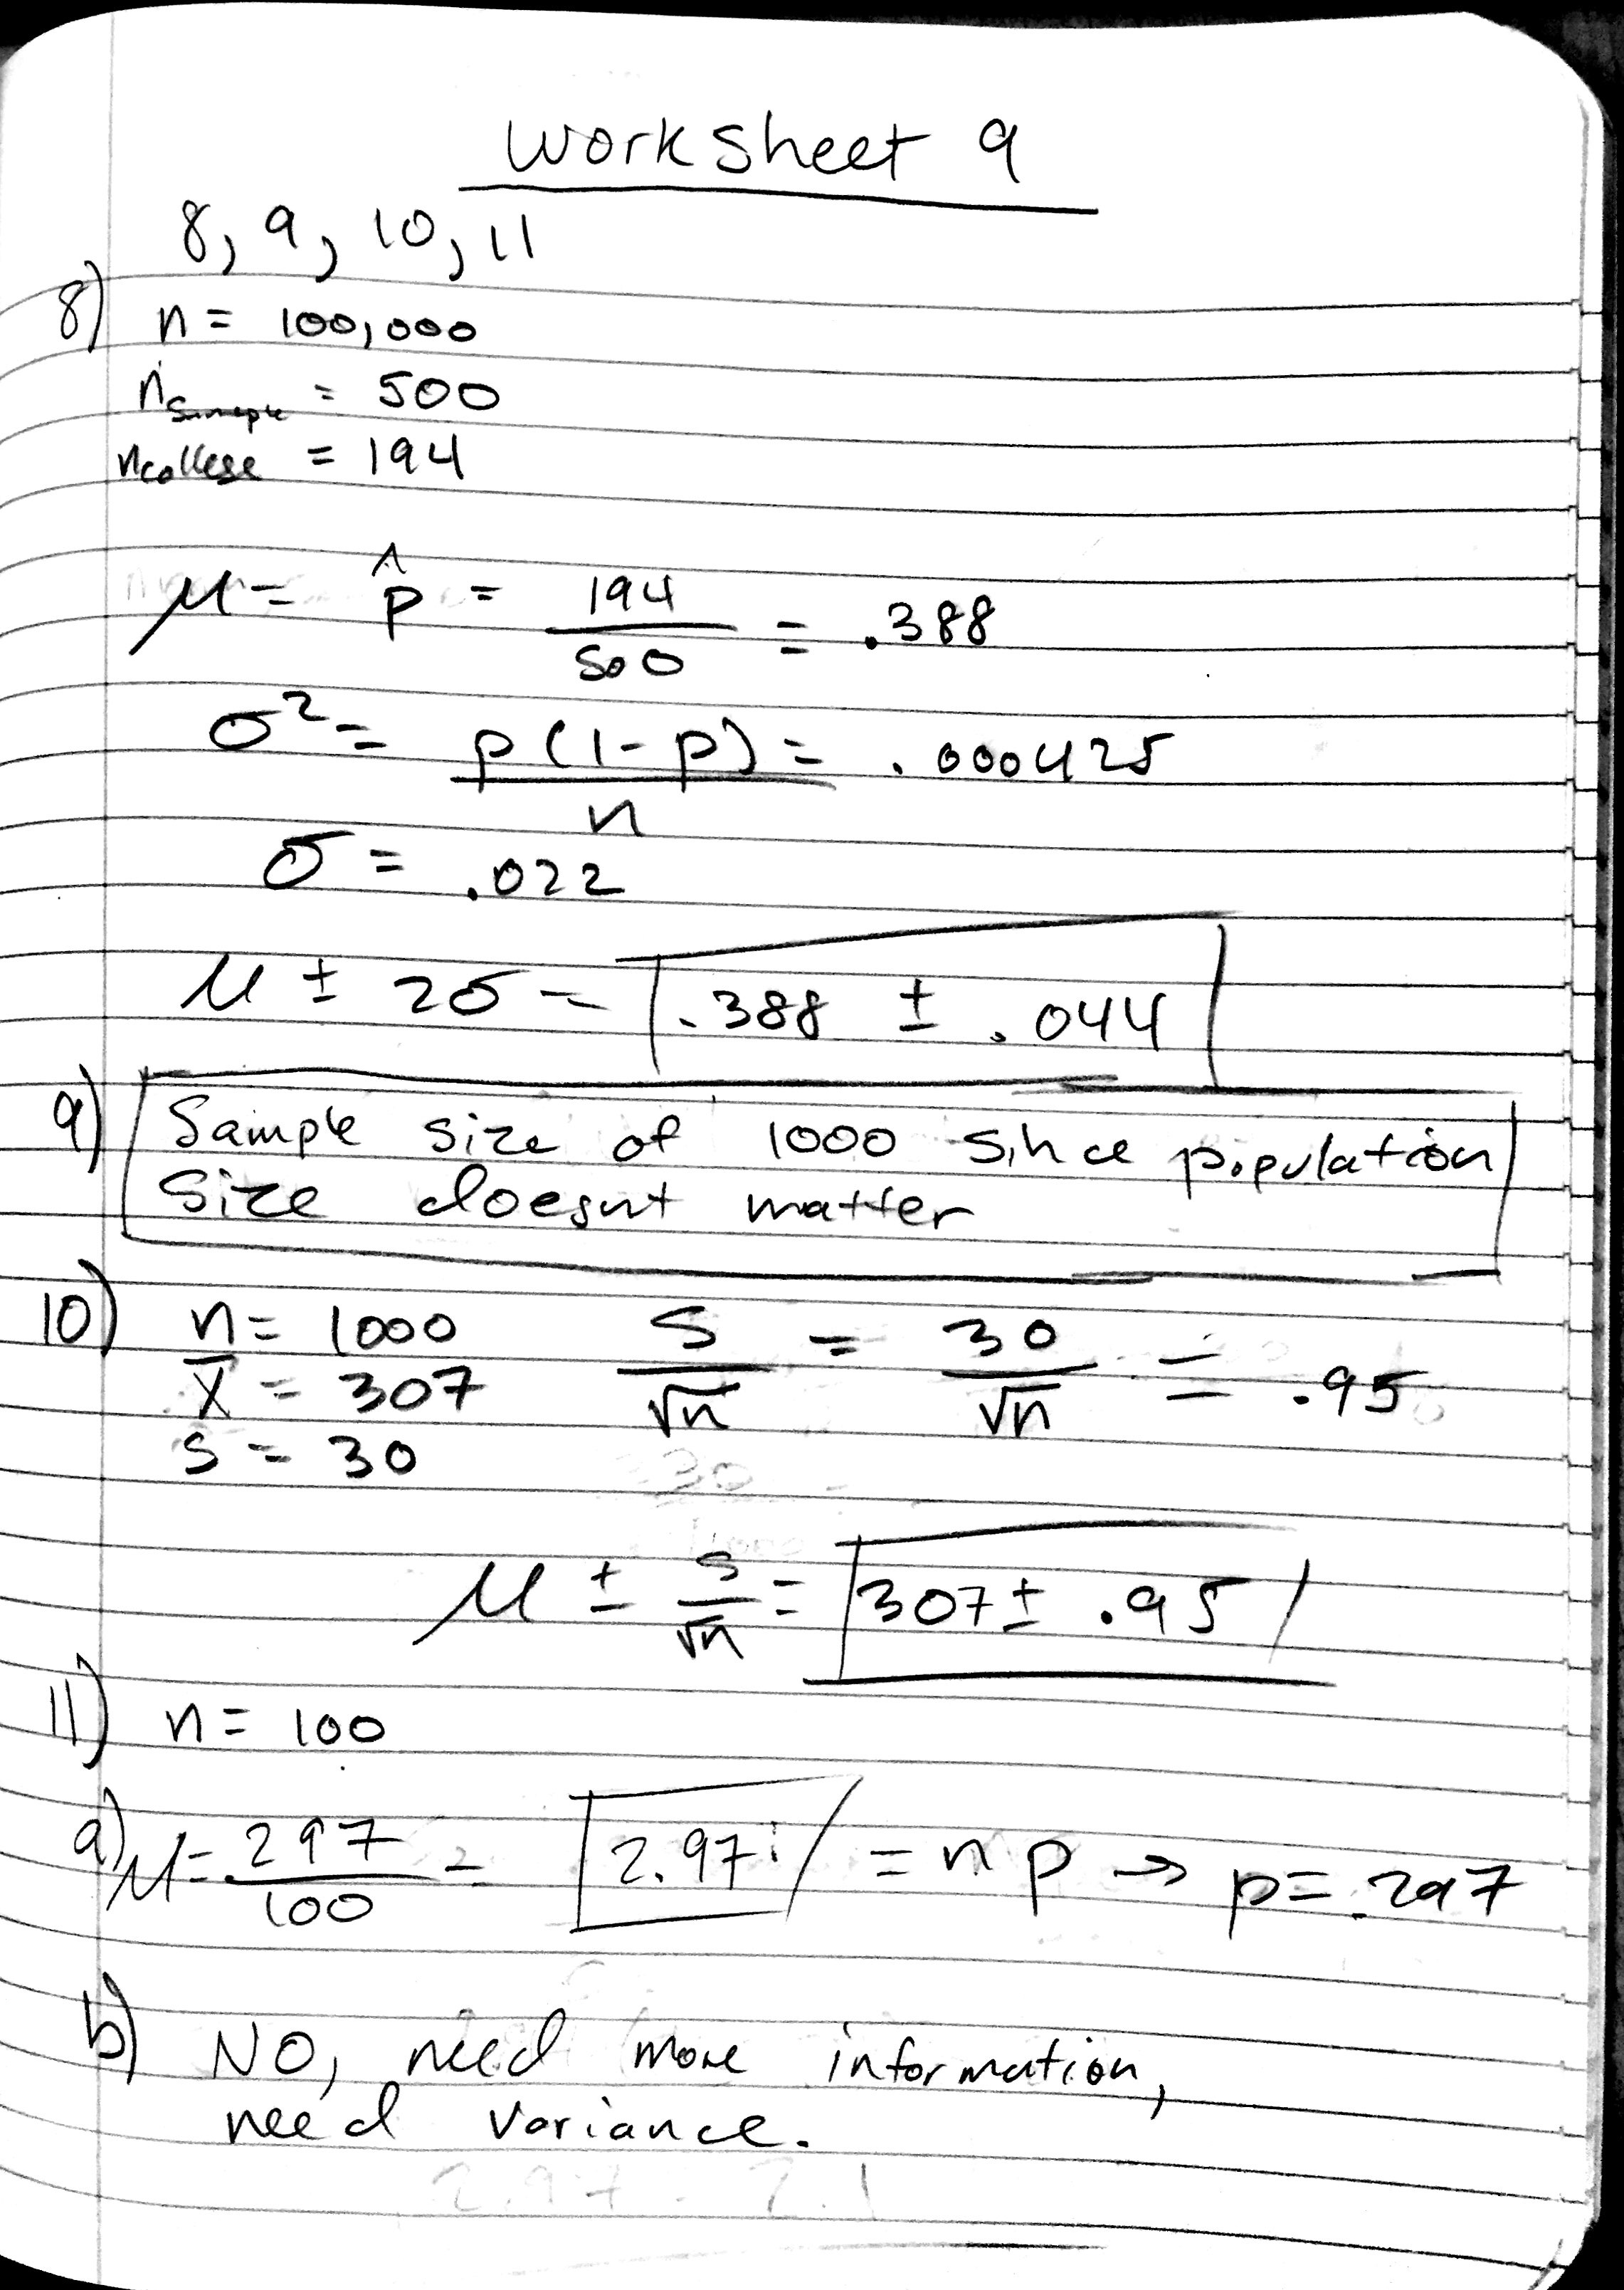 Worksheet 9
8, 9, 10, 11
8) n = 100,000
n sample = 500
n college = 194
μ = p̂ = 194/500 = .388
σ² = p(1-p)/n = .000425
σ = .022
μ ± 2σ = .388 ± .044
9) Sample size of 1000 since population
size doesnt matter
10) n = 1000 s/√n = 30/√n = .95
x̄ = 307
s = 30
μ ± s/√n = 307 ± .95
11) n = 100
a) μ = 297/100 = 2.97 = np → p = .297
b) NO, need more information,
need variance.